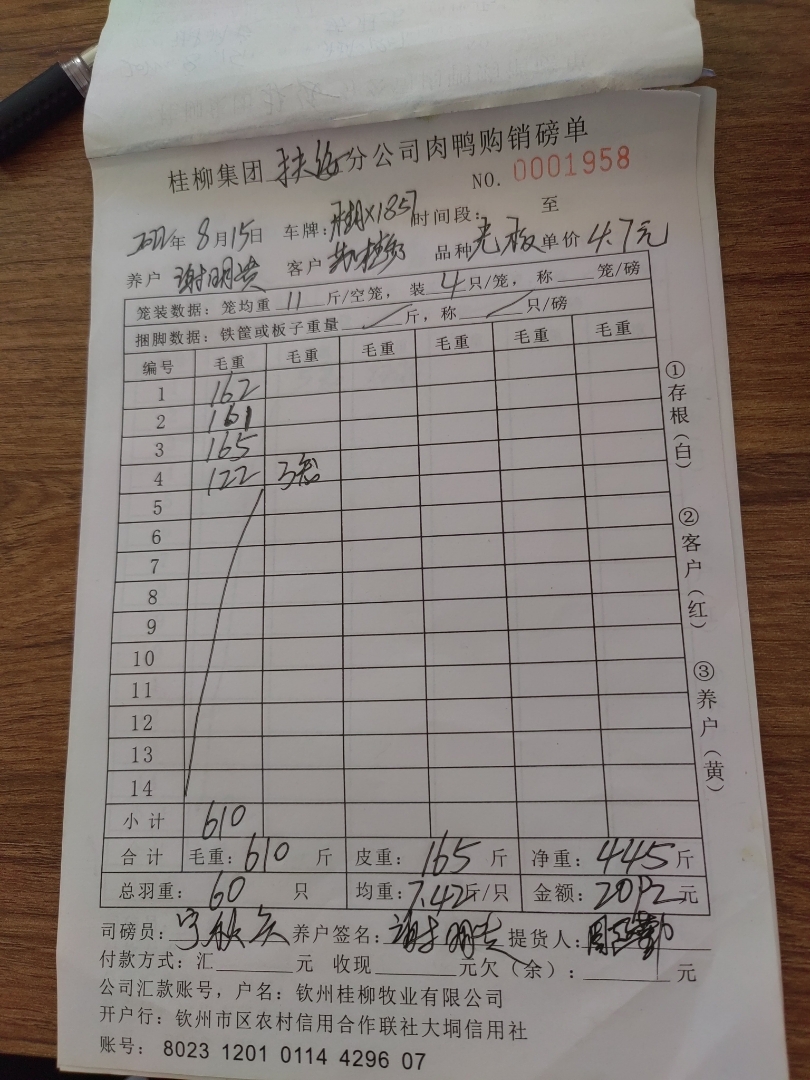 桂柳集团扶绥分公司肉鸭购销磅单
NO. 0001958
2022年8月15日 车牌: X1857 时间段: 至
养户 谢明贵 客户 品种 光板 单价 4.7元
笼装数据: 笼均重 11 斤/空笼, 装 4 只/笼, 称 笼/磅
捆脚数据: 铁筐或板子重量 斤, 称 只/磅
编号 毛重 毛重 毛重 毛重 毛重 毛重
1 162
2 161
3 165
4 122 3笼
5
6
7
8
9
10
11
12
13
14
小计 610
合计 毛重: 610 斤 皮重: 165 斤 净重: 445 斤
总羽重: 60 只 均重: 7.42 斤/只 金额: 2092 元
司磅员: 养户签名: 谢明贵 提货人:
付款方式: 汇 元 收现 元 欠(余): 元
公司汇款账号, 户名: 钦州桂柳牧业有限公司
开户行: 钦州市区农村信用合作联社大垌信用社
账号: 8023 1201 0114 4296 07
①存根(白)
②客户(红)
③养户(黄)